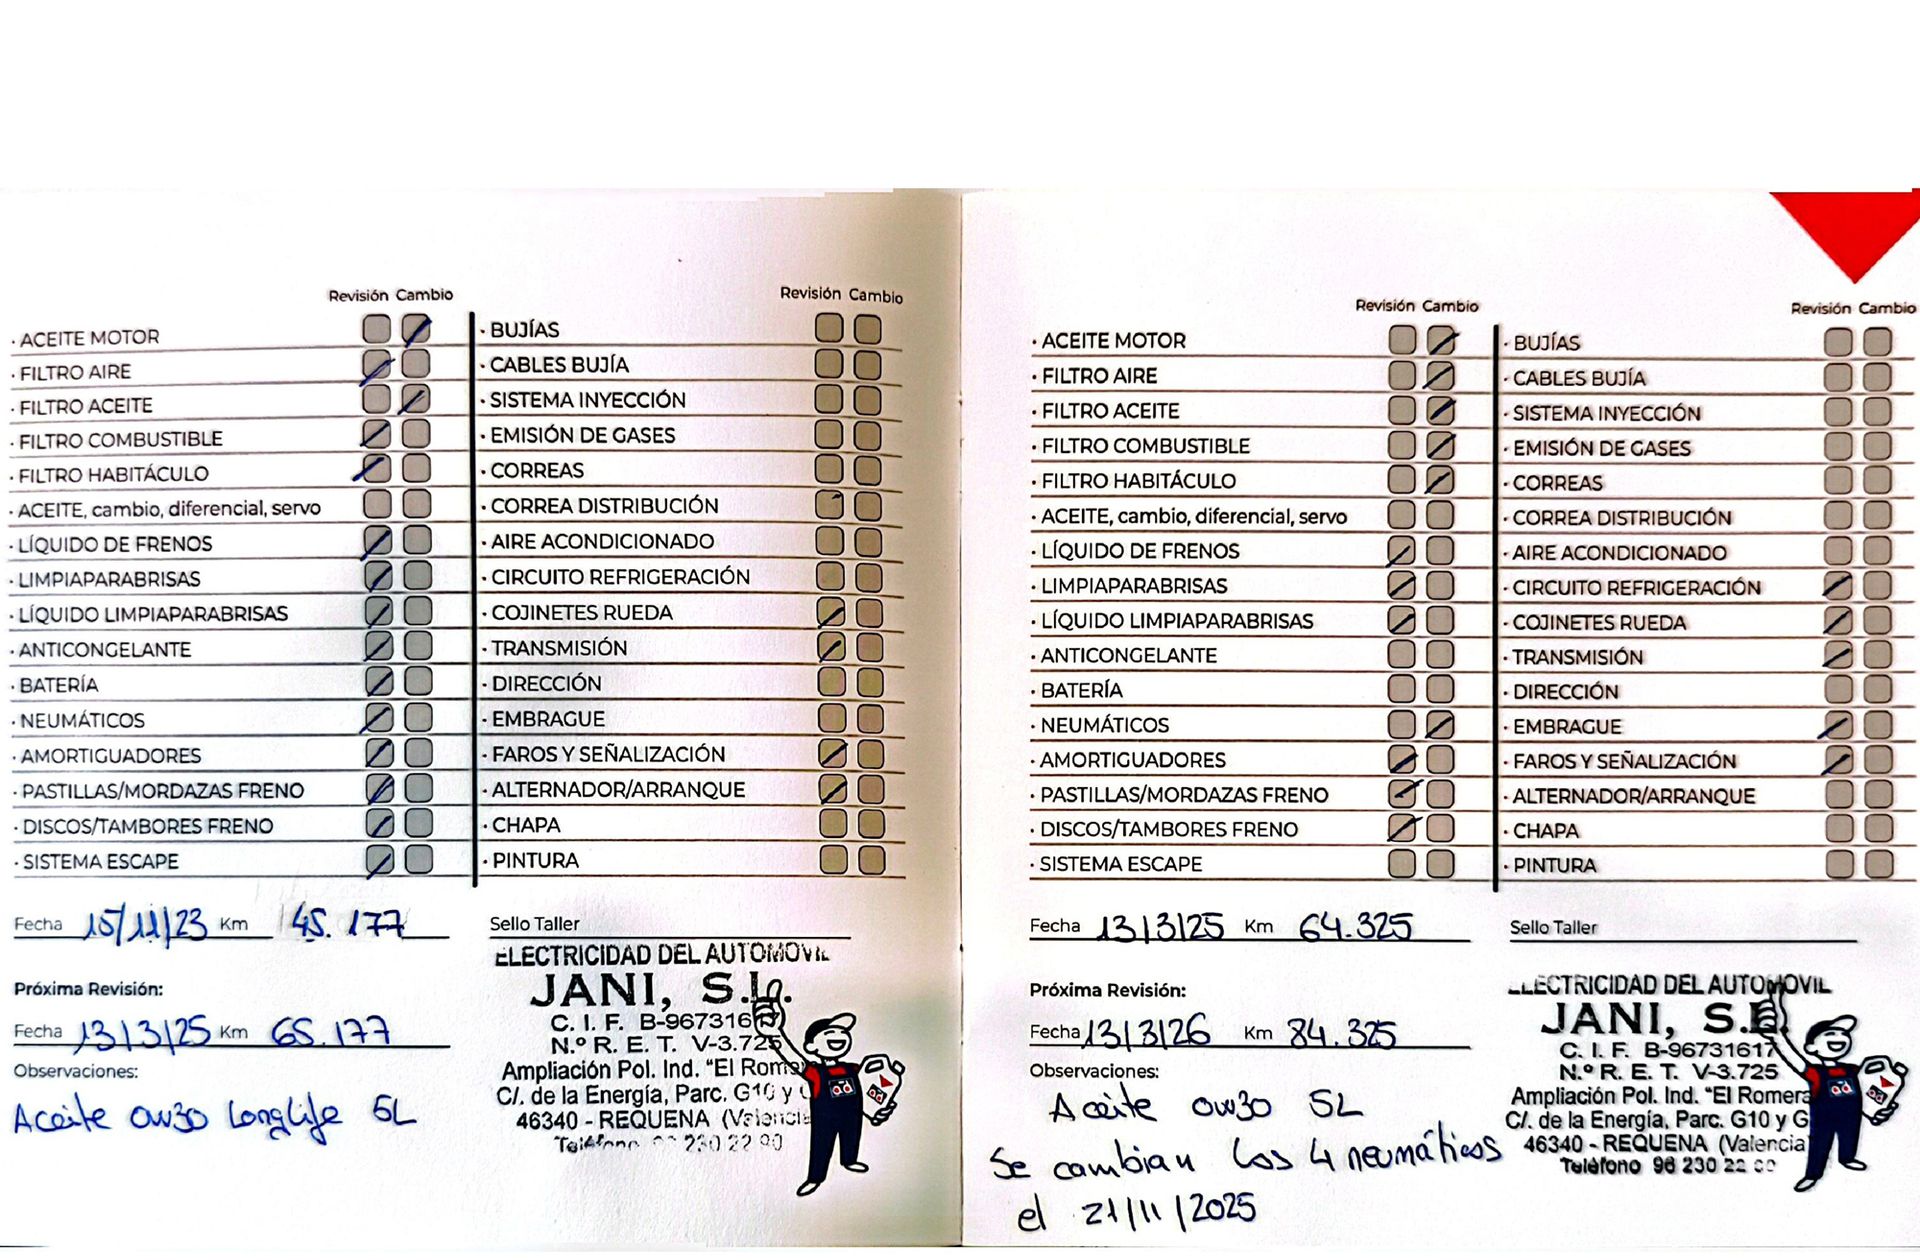 Revisión Cambio
· ACEITE MOTOR
· FILTRO AIRE
· FILTRO ACEITE
· FILTRO COMBUSTIBLE
· FILTRO HABITÁCULO
· ACEITE, cambio, diferencial, servo
· LÍQUIDO DE FRENOS
· LIMPIAPARABRISAS
· LÍQUIDO LIMPIAPARABRISAS
· ANTICONGELANTE
· BATERÍA
· NEUMÁTICOS
· AMORTIGUADORES
· PASTILLAS/MORDAZAS FRENO
· DISCOS/TAMBORES FRENO
· SISTEMA ESCAPE
Revisión Cambio
· BUJÍAS
· CABLES BUJÍA
· SISTEMA INYECCIÓN
· EMISIÓN DE GASES
· CORREAS
· CORREA DISTRIBUCIÓN
· AIRE ACONDICIONADO
· CIRCUITO REFRIGERACIÓN
· COJINETES RUEDA
· TRANSMISIÓN
· DIRECCIÓN
· EMBRAGUE
· FAROS Y SEÑALIZACIÓN
· ALTERNADOR/ARRANQUE
· CHAPA
· PINTURA
Fecha 15/11/23 Km 45.177
Próxima Revisión:
Fecha 13/3/25 Km 65.177
Observaciones:
Aceite 0w30 Longlife 5L
Sello Taller
ELECTRICIDAD DEL AUTOMOVIL
JANI, S.L.
C. I. F. B-9673161
N.º R. E. T. V-3.725
Ampliación Pol. Ind. "El Rome
C/. de la Energía, Parc. G10 y
46340 - REQUENA (Valencia
Teléfono 230 22 90
Revisión Cambio
· ACEITE MOTOR
· FILTRO AIRE
· FILTRO ACEITE
· FILTRO COMBUSTIBLE
· FILTRO HABITÁCULO
· ACEITE, cambio, diferencial, servo
· LÍQUIDO DE FRENOS
· LIMPIAPARABRISAS
· LÍQUIDO LIMPIAPARABRISAS
· ANTICONGELANTE
· BATERÍA
· NEUMÁTICOS
· AMORTIGUADORES
· PASTILLAS/MORDAZAS FRENO
· DISCOS/TAMBORES FRENO
· SISTEMA ESCAPE
Revisión Cambio
· BUJÍAS
· CABLES BUJÍA
· SISTEMA INYECCIÓN
· EMISIÓN DE GASES
· CORREAS
· CORREA DISTRIBUCIÓN
· AIRE ACONDICIONADO
· CIRCUITO REFRIGERACIÓN
· COJINETES RUEDA
· TRANSMISIÓN
· DIRECCIÓN
· EMBRAGUE
· FAROS Y SEÑALIZACIÓN
· ALTERNADOR/ARRANQUE
· CHAPA
· PINTURA
Fecha 13/3/25 Km 64.325
Próxima Revisión:
Fecha 13/3/26 Km 84.325
Observaciones:
Aceite 0w30 5L
Se cambian los 4 neumáticos
el 21/11/2025
Sello Taller
ELECTRICIDAD DEL AUTOMOVIL
JANI, S.L.
C. I. F. B-96731617
N.º R. E. T. V-3.725
Ampliación Pol. Ind. "El Romera
C/. de la Energía, Parc. G10 y G
46340 - REQUENA (Valencia
Teléfono 96 230 22